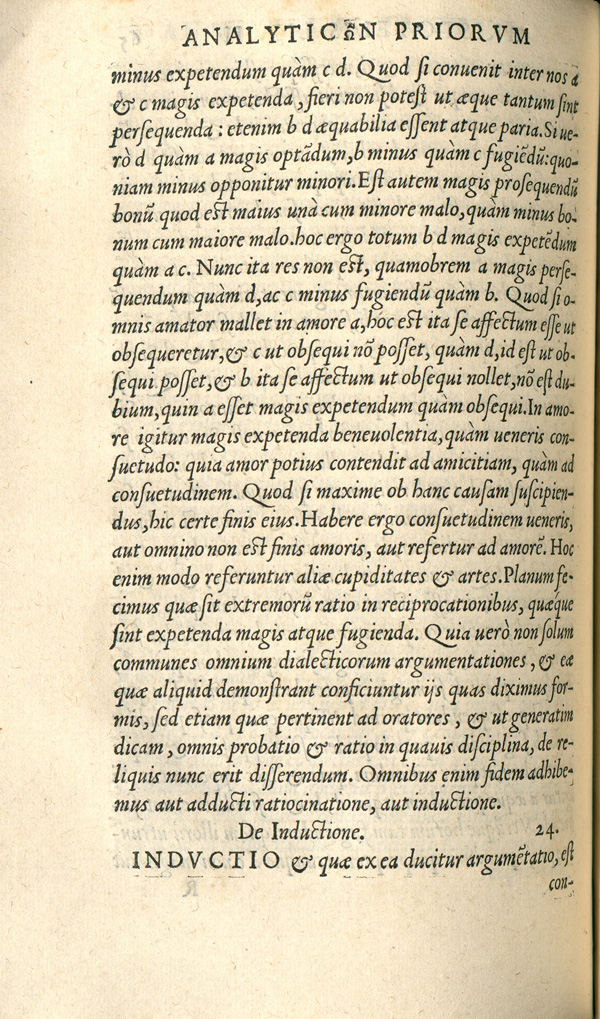 ANALYTICΩN PRIORVM
minus expetendum quàm c d. Quod si conuenit inter nos a
& c magis expetenda, fieri non potest ut æque tantum sint
persequenda: etenim b d æquabilia essent atque paria. Si ue-
rò d quàm a magis optādum, b minus quàm c fugiēdū: quo-
niam minus opponitur minori. Est autem magis prosequendū
bonū quod est maius unà cum minore malo, quàm minus bo-
num cum maiore malo. hoc ergo totum b d magis expetēdum
quàm a c. Nunc ita res non est, quamobrem a magis perse-
quendum quàm d, ac c minus fugiendū quàm b. Quod si o-
mnis amator mallet in amore a, hoc est ita se affectum esse ut
obsequeretur, & c ut obsequi nō posset, quàm d, id est ut ob-
sequi posset, & b ita se affectum ut obsequi nollet, nō est du-
bium, quin a esset magis expetendum quàm obsequi. In amo-
re igitur magis expetenda beneuolentia, quàm ueneris con-
suetudo: quia amor potius contendit ad amicitiam, quàm ad
consuetudinem. Quod si maxime ob hanc causam suscipien-
dus, hic certe finis eius. Habere ergo consuetudinem ueneris,
aut omnino non est finis amoris, aut refertur ad amorē. Hoc
enim modo referuntur aliæ cupiditates & artes. Planum fe-
cimus quæ sit extremorū ratio in reciprocationibus, quæque
sint expetenda magis atque fugienda. Quia uerò non solum
communes omnium dialecticorum argumentationes, & eæ
quæ aliquid demonstrant conficiuntur ijs quas diximus for-
mis, sed etiam quæ pertinent ad oratores, & ut generatim
dicam, omnis probatio & ratio in quauis disciplina, de re-
liquis nunc erit disserendum. Omnibus enim fidem adhibe-
mus aut adducti ratiocinatione, aut inductione.
De Inductione. 24.
INDVCTIO & quæ ex ea ducitur argumētatio, est
con-